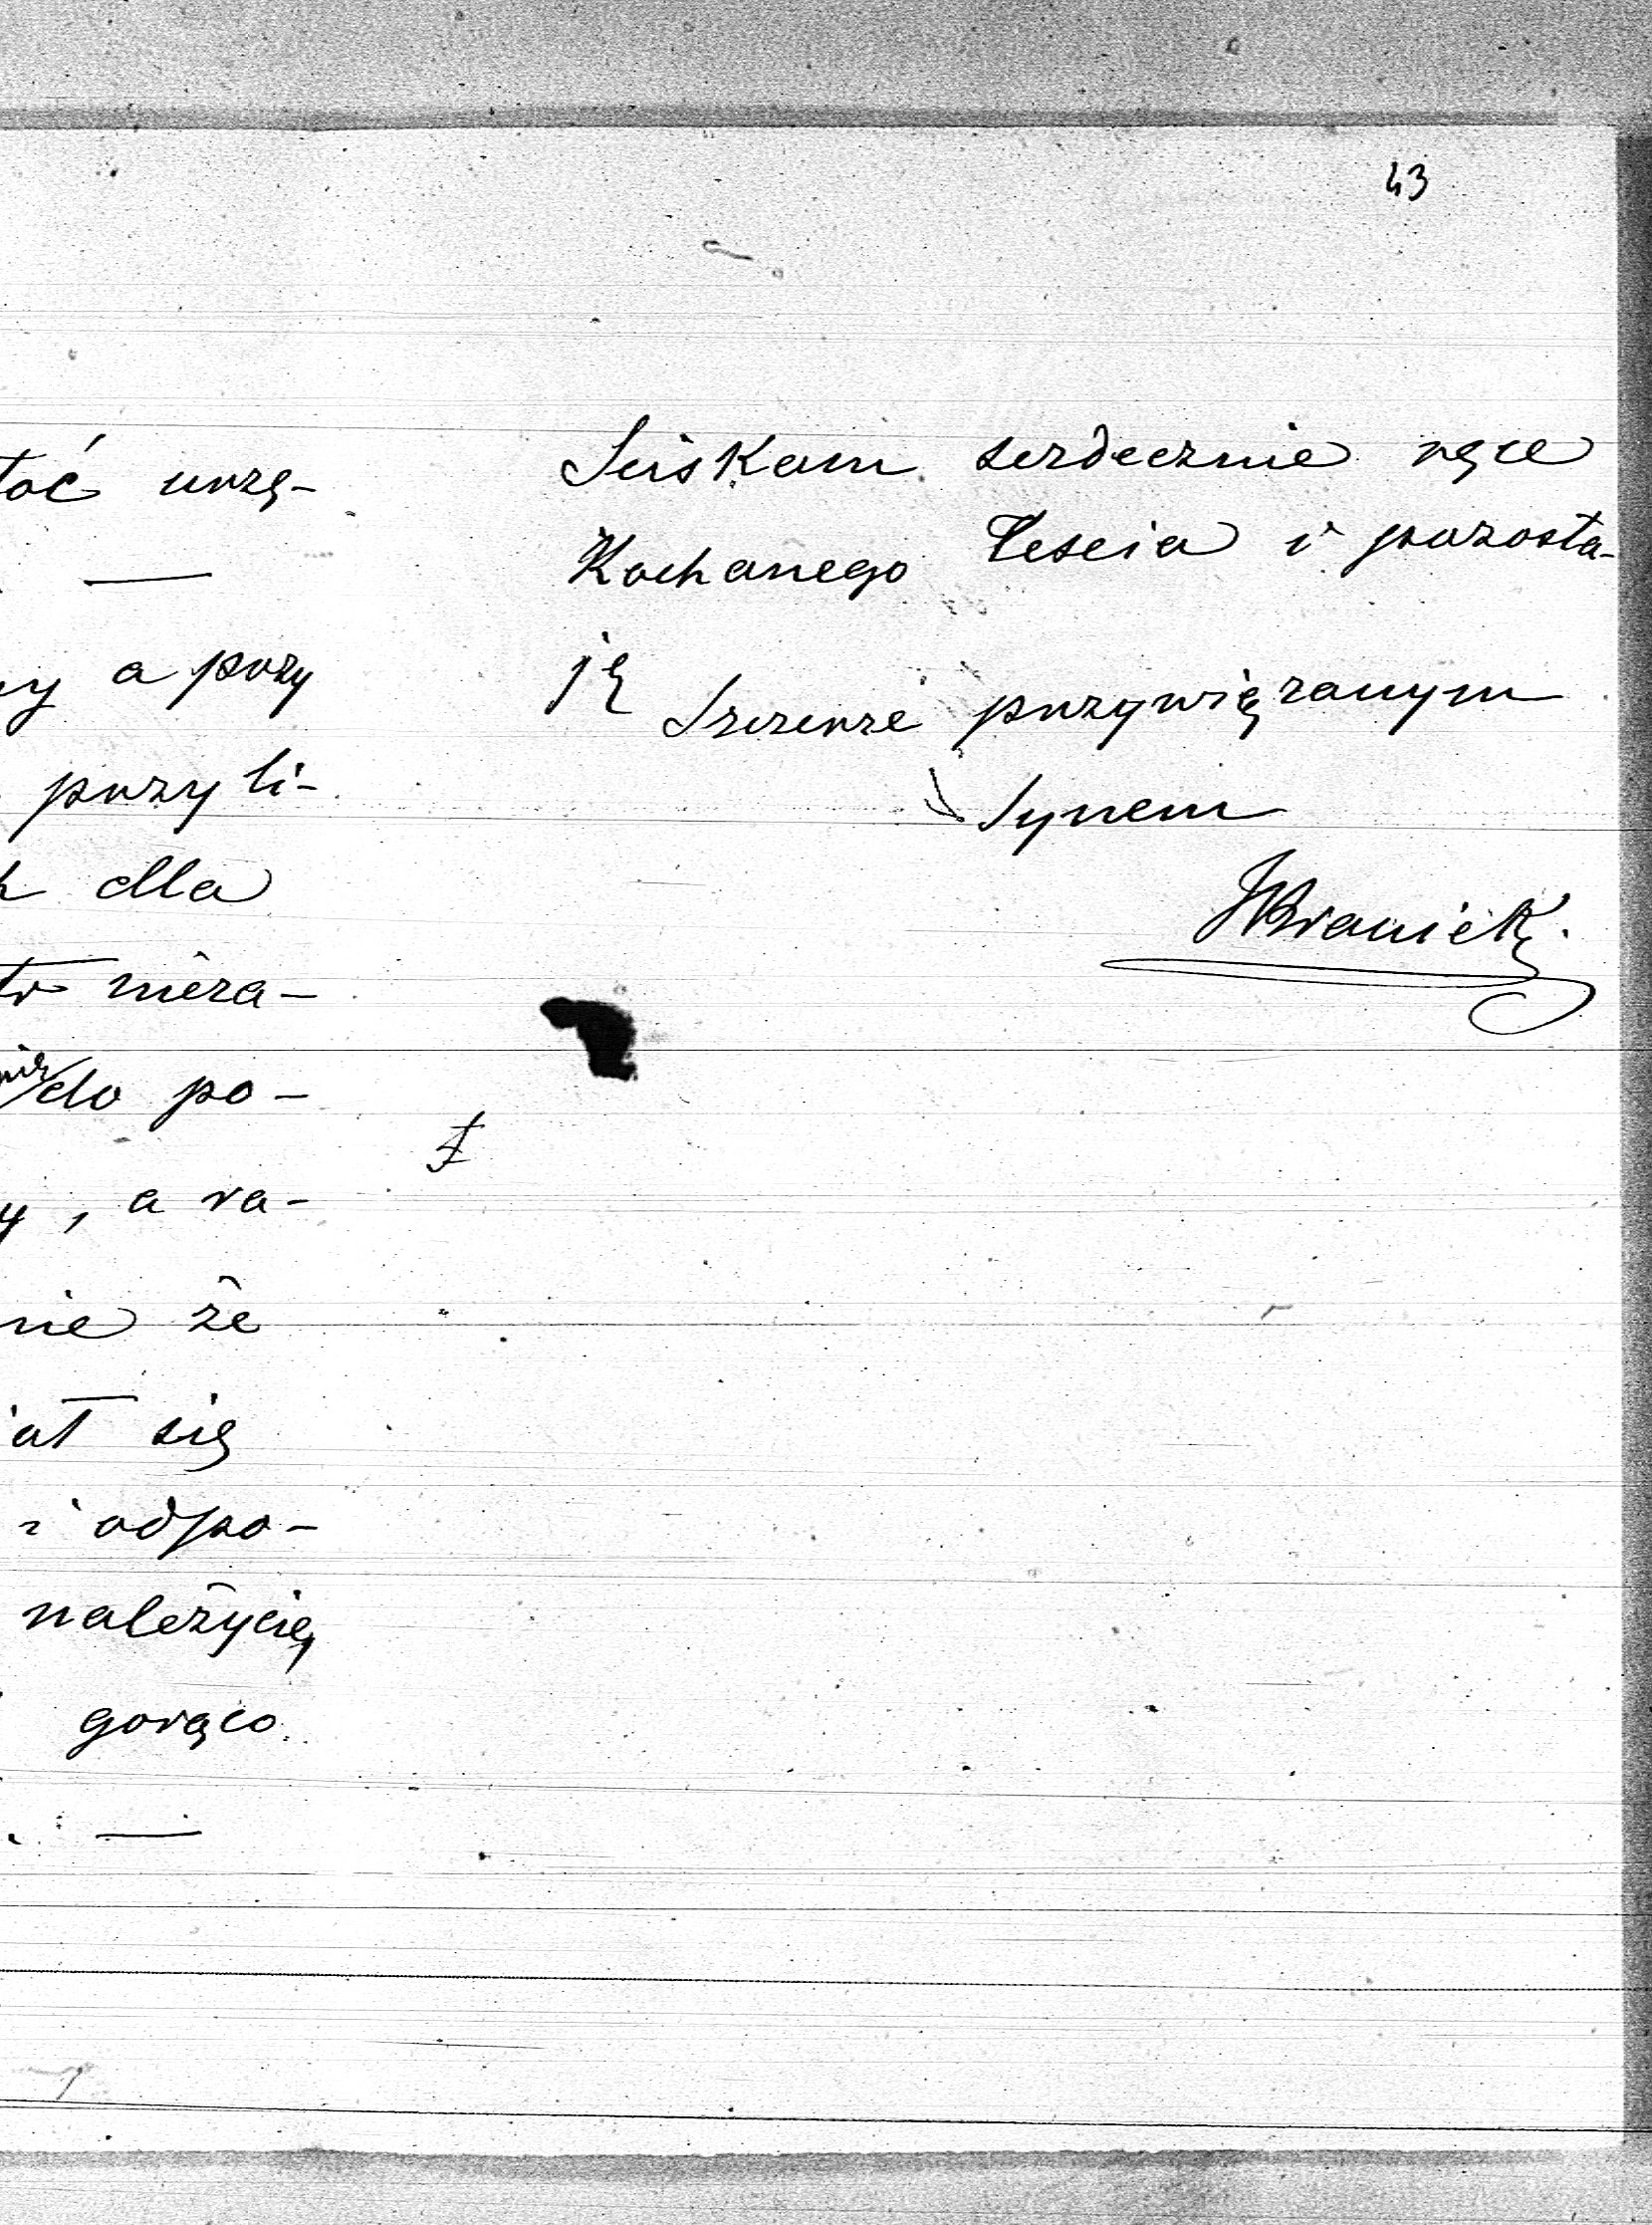 43
tać urzę-
—
a przy
przy li-
dla
nieza-
do po-
, a ra-
nie że
iał się
i odpo-
należycie,
gorąco
—
Sciskam serdecznie ręce
Kochanego Teścia i pozosta-
ję
Szczerze przywiązanym
Synem
WBranicki.